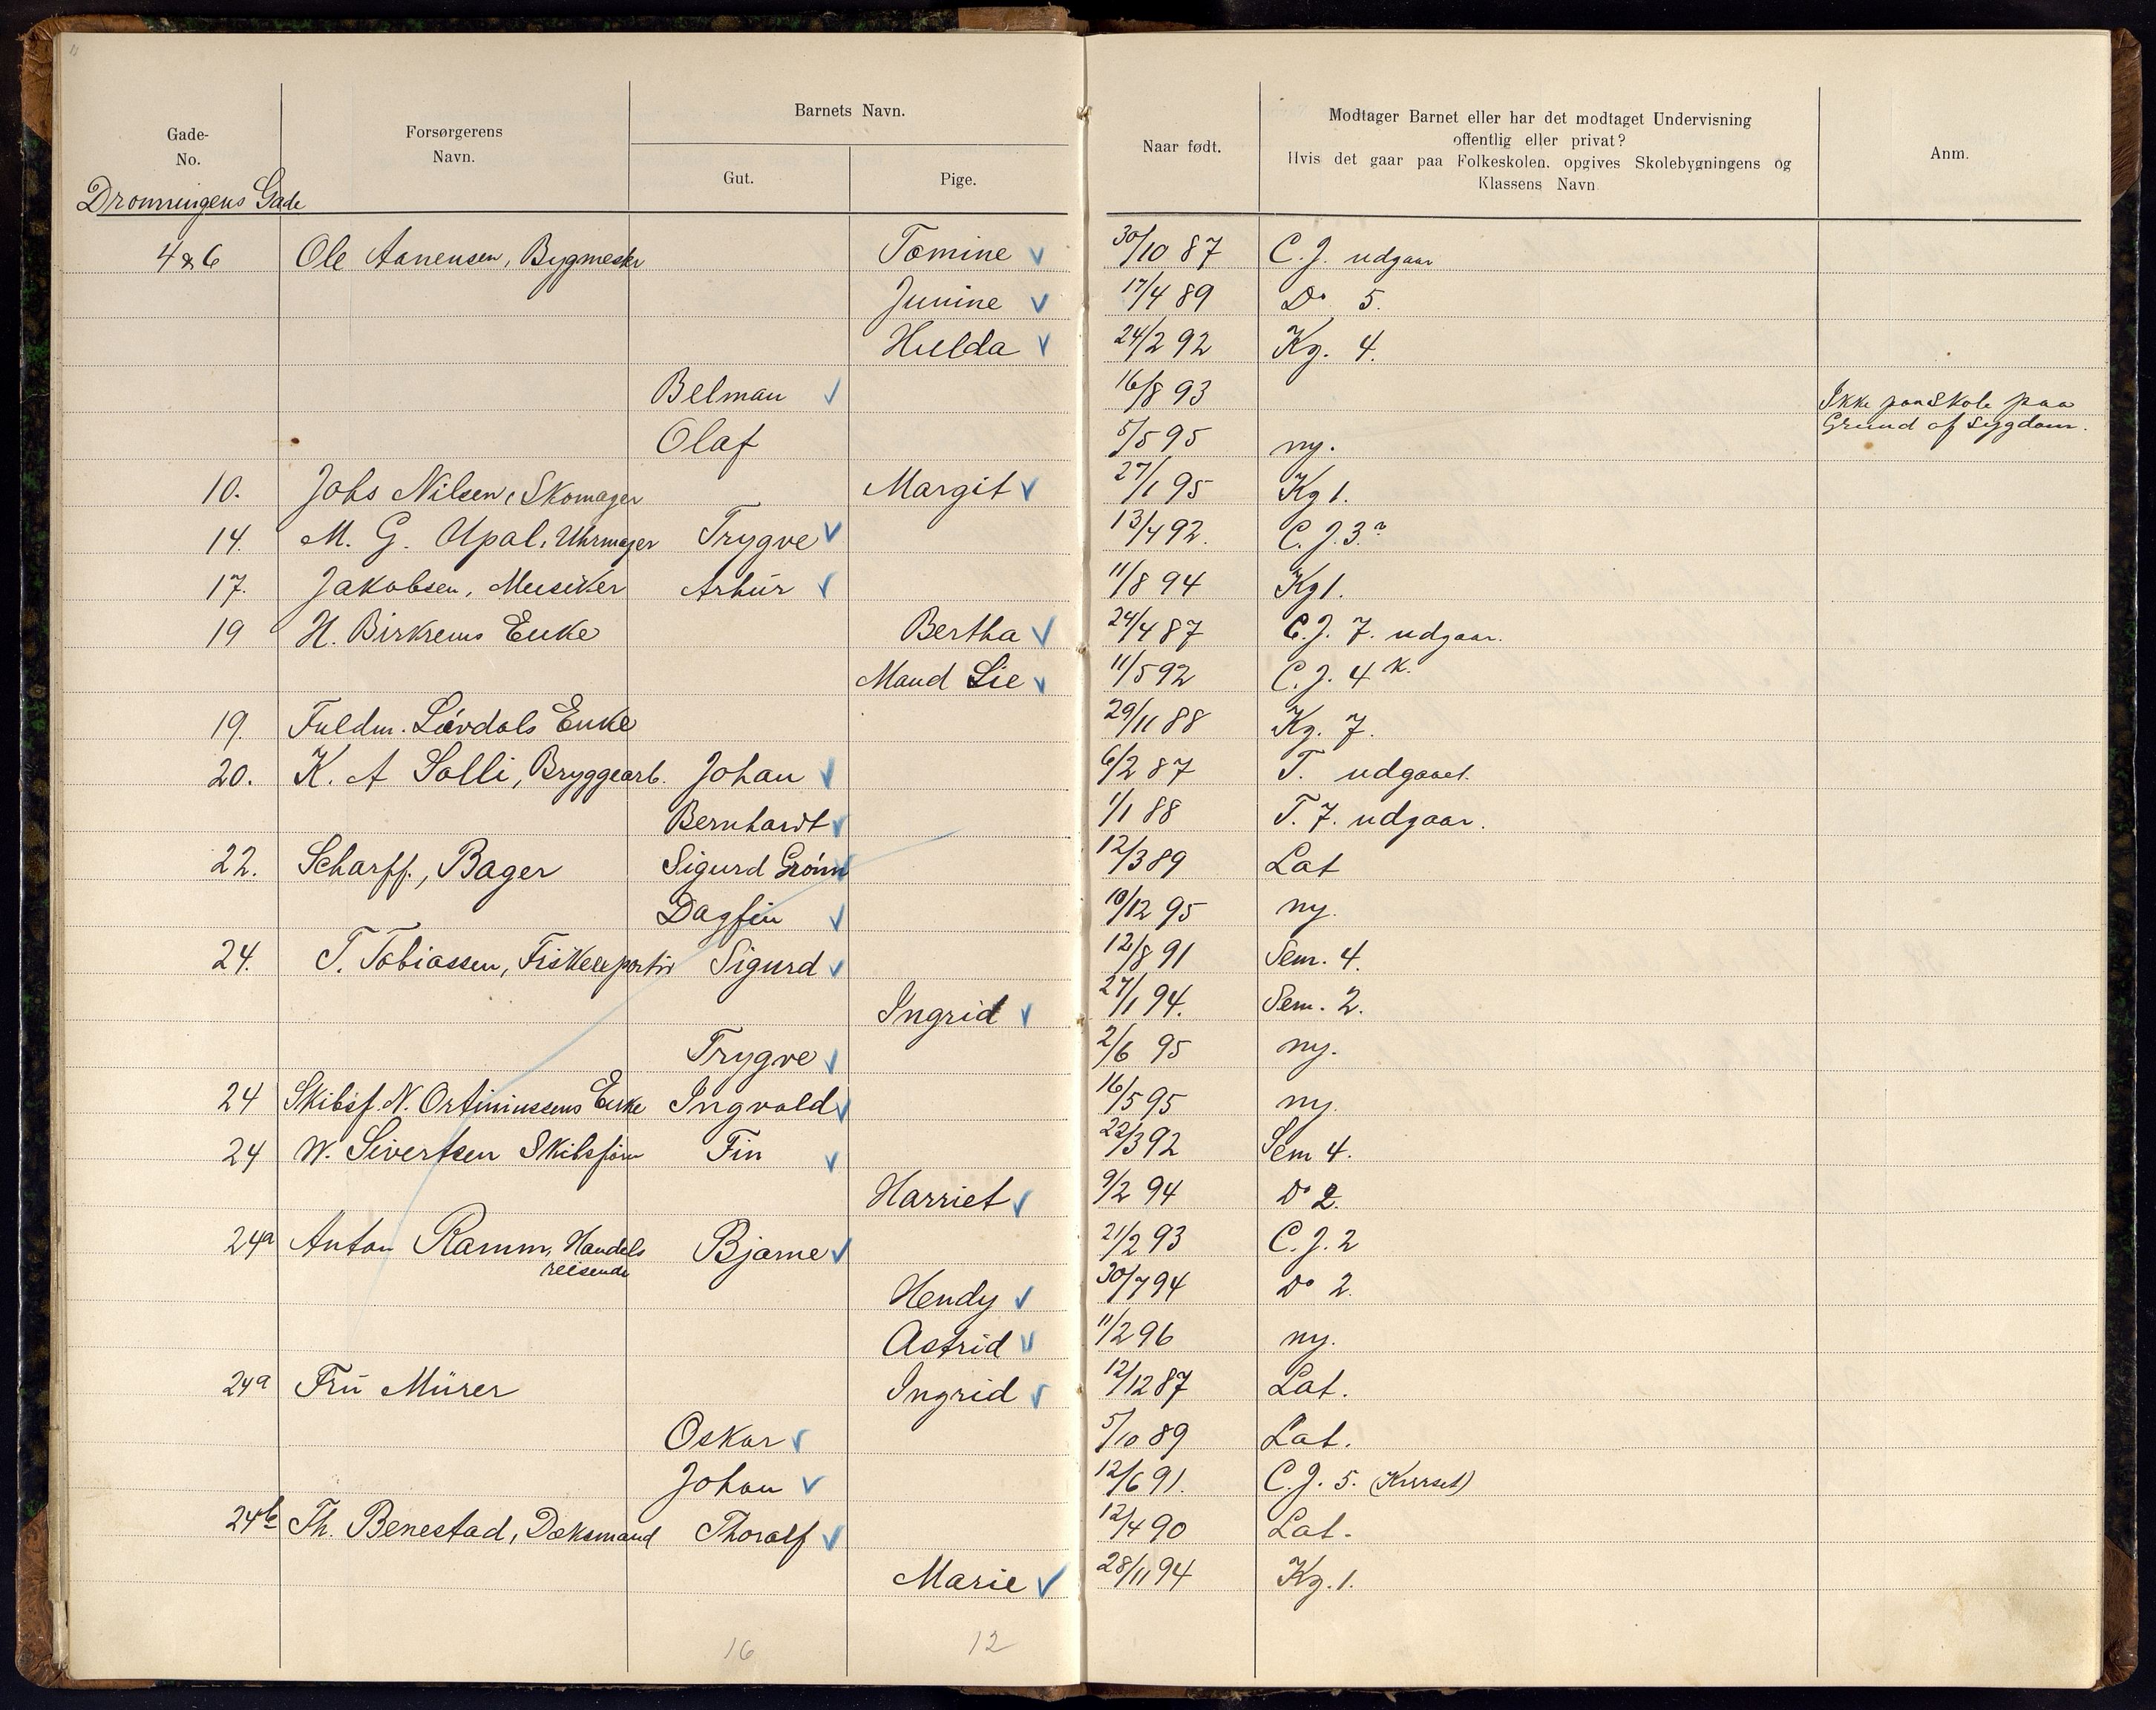 Gade-
No.
Forsørgerens
Navn.
Barnets Navn.
Gut.
Pige.
Naar født.
Modtager Barnet eller har det modtaget Undervisning
offentlig eller privat?
Hvis det gaar paa Folkeskolen. opgives Skolebygningens og
Klassens Navn
Anm.
Dronningens Gade
4 & 6 Ole Aanensen, Bygmestr Tomine 30/10 87 C. J. udgaar
Junine 17/4 89 Do 5.
Hulda 24/2 92 Kg. 4.
Belman 16/8 93 Ikke paa Skole paa
Grund af Sygdom.
Olaf 5/5 95 ny.
10. Johs Nilsen, Skomager Margit 27/1 95 Kg 1.
14. M. G. Upal, Uhrmager Trygve 13/4 92. C. J. 3.
17. Jakobsen, Musiker Arhur 11/8 94 Kg 1.
19 H. Birkrems Enke Bertha 24/4 87 C. J. 7. udgaar.
Maud Lie 11/5 92 C. J. 4 K.
19. Fuldm. Lövdals Enke 29/11 88 Kg. 7.
20. K. A Solli, Bryggearb. Johan 6/2 87 T. udgaaet.
Bernhardt 1/1 88 T. 7. udgaar.
22. Scharff., Bager Sigurd Grönn 12/3 89 Lat
Dagfin 10/12 95 ny.
24. T. Tobiassen, Fiskeexportör Sigurd 12/8 91 Sem. 4.
Ingrid 27/1 94. Sem. 2.
Trygve 2/6 95 ny.
24 Skibsf. N. Ortiniussens Enke Ingvald 16/5 95 ny.
24 W. Sivertsen Skibsförer Fin 22/3 92 Sem 4.
Harriet 9/2 94 Do 2.
24a Anton Ramm, Handels
reisende Bjarne 21/2 93 C. J. 2
Hendy 30/7 94 Do 2.
Astrid 11/2 96 ny.
24a Fru Mürer Ingrid 12/12 87 Lat.
Oskar 5/10 89 Lat.
Johan 12/6 91. C. J. 5. (Kurset)
24b Th. Benestad, Dæksmand Thoralf 12/4 90 Lat.
Marie 28/11 94 Kg. 1.
16 12